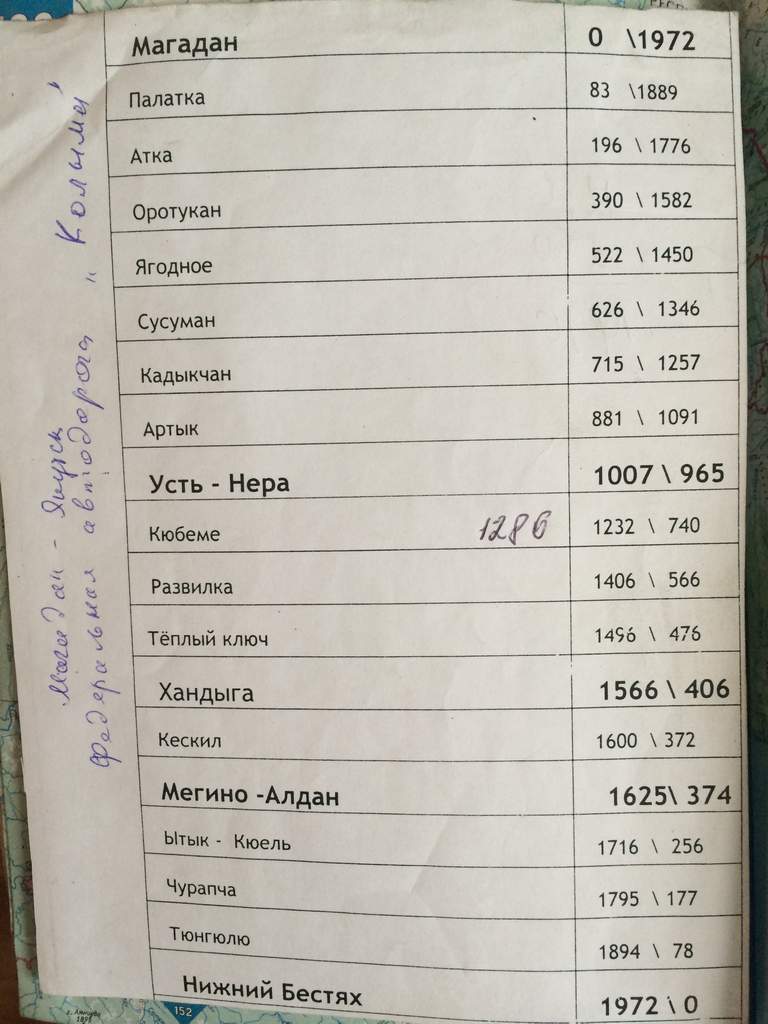 Магадан - Якутск
федеральная автодорога „Колыма"
Магадан 0 \1972
Палатка 83 \1889
Атка 196 \ 1776
Оротукан 390 \ 1582
Ягодное 522 \ 1450
Сусуман 626 \ 1346
Кадыкчан 715 \ 1257
Артык 881 \ 1091
Усть - Нера 1007 \ 965
Кюбеме 1286 1232 \ 740
Развилка 1406 \ 566
Тёплый ключ 1496 \ 476
Хандыга 1566 \ 406
Кескил 1600 \ 372
Мегино -Алдан 1625\ 374
Ытык - Кюель 1716 \ 256
Чурапча 1795 \ 177
Тюнгюлю 1894 \ 78
Нижний Бестях 1972 \ 0
152